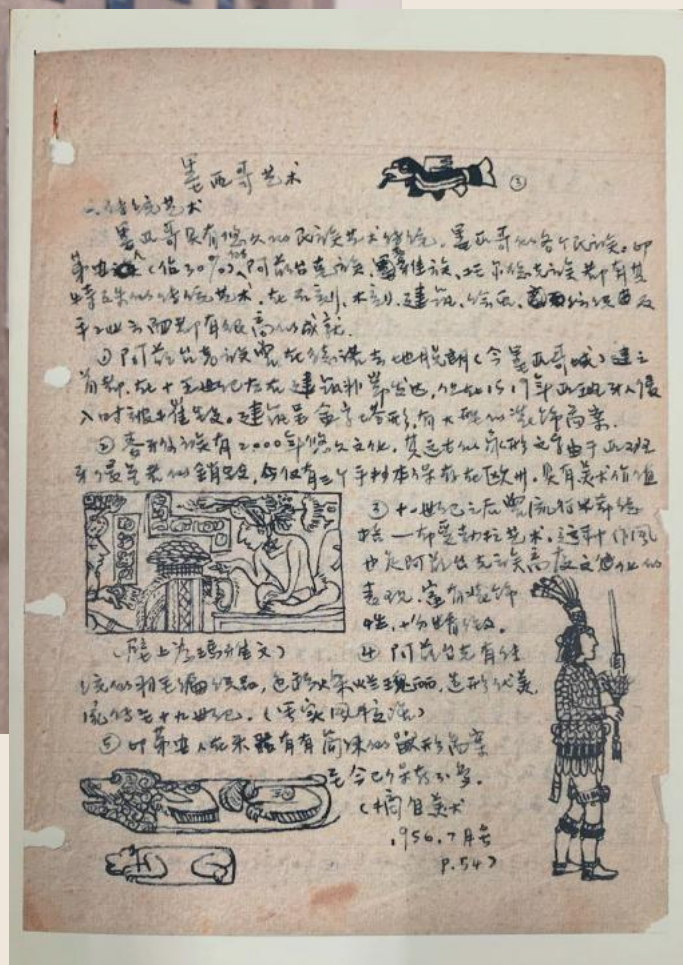 墨西哥艺术
③
一、传统艺术
墨西哥具有悠久的民族艺术传统，墨西哥的各个民族。印
第安人（佔30%）、阿兹台克族、玛雅族、托尔台克族都有其
特殊的传统艺术，在石刻、木刻、建筑、绘画、纺织及
手工业方面都有很高的成就
① 阿兹台克族曾在 地脱朗（今墨西哥城）建立
首都，在十五世纪左右建筑非常发达，但在1519年西班牙人侵
入时被摧毁。建筑呈金字塔形，有大胆的装饰图案。
② 有2000年悠久文化，其远古的象形文字由于西班
牙侵略者的销毁，今仅有三个手抄本保存在欧州。具有美术价值
③ 十 世纪之后曾流行米斯德
一 艺术。这种作风
也是阿兹台克族高度文化的
表现，富有装饰
性，十分精致。
（壁上 玛雅文）
④ 阿兹台克有传
统的羽毛编织品，色彩 瑰丽，造形优美，
流传至十九世纪。
⑤ 印第安人在 有简练的 形图案
至今已保存不多。
（摘自美术
1956.7月号
P.54）